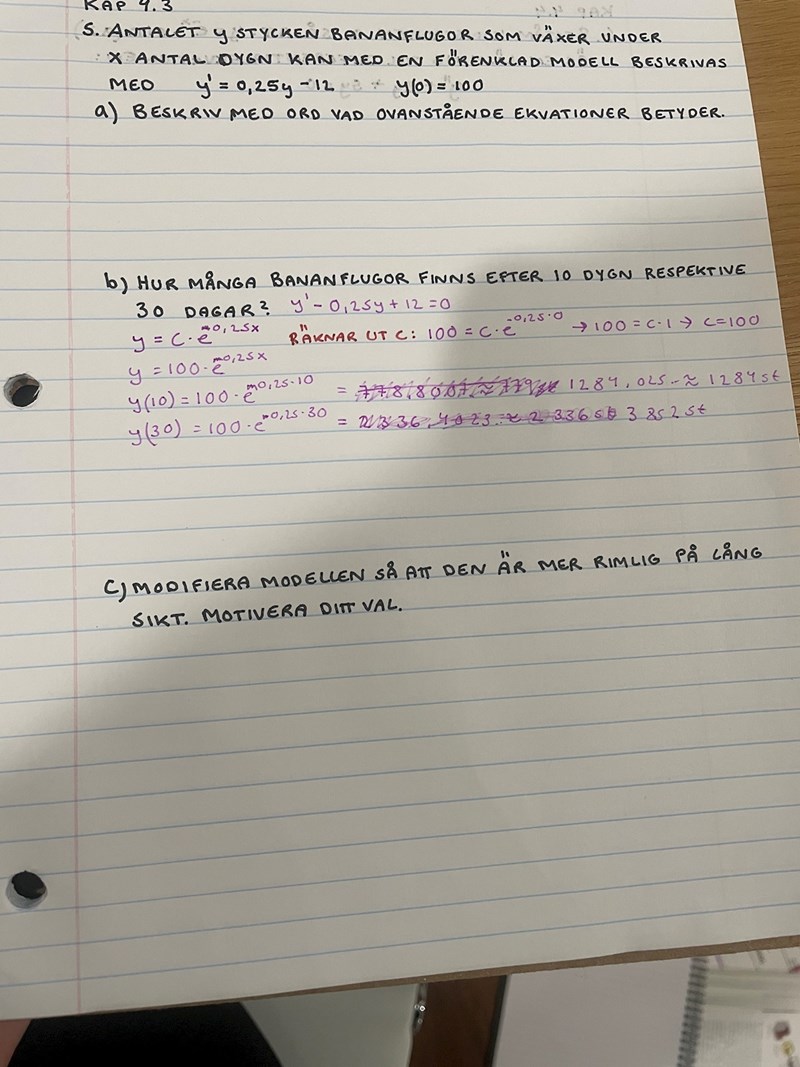 KAP 4.3
5. ANTALET y STYCKEN BANANFLUGOR SOM VÄXER UNDER
X ANTAL DYGN KAN MED EN FÖRENKLAD MODELL BESKRIVAS
MED y' = 0,25y - 12 y(0) = 100
a) BESKRIV MED ORD VAD OVANSTÅENDE EKVATIONER BETYDER.
b) HUR MÅNGA BANANFLUGOR FINNS EFTER 10 DYGN RESPEKTIVE
30 DAGAR? y' - 0,25y + 12 = 0
y = C · e^0,25x RÄKNAR UT C: 100 = C · e^-0,25·0 → 100 = C · 1 → C = 100
y = 100 · e^0,25x
y(10) = 100 · e^0,25·10 = 1284,025.. ≈ 1284 st
y(30) = 100 · e^0,25·30 = 3 852 st
C) MODIFIERA MODELLEN SÅ ATT DEN ÄR MER RIMLIG PÅ LÅNG
SIKT. MOTIVERA DITT VAL.